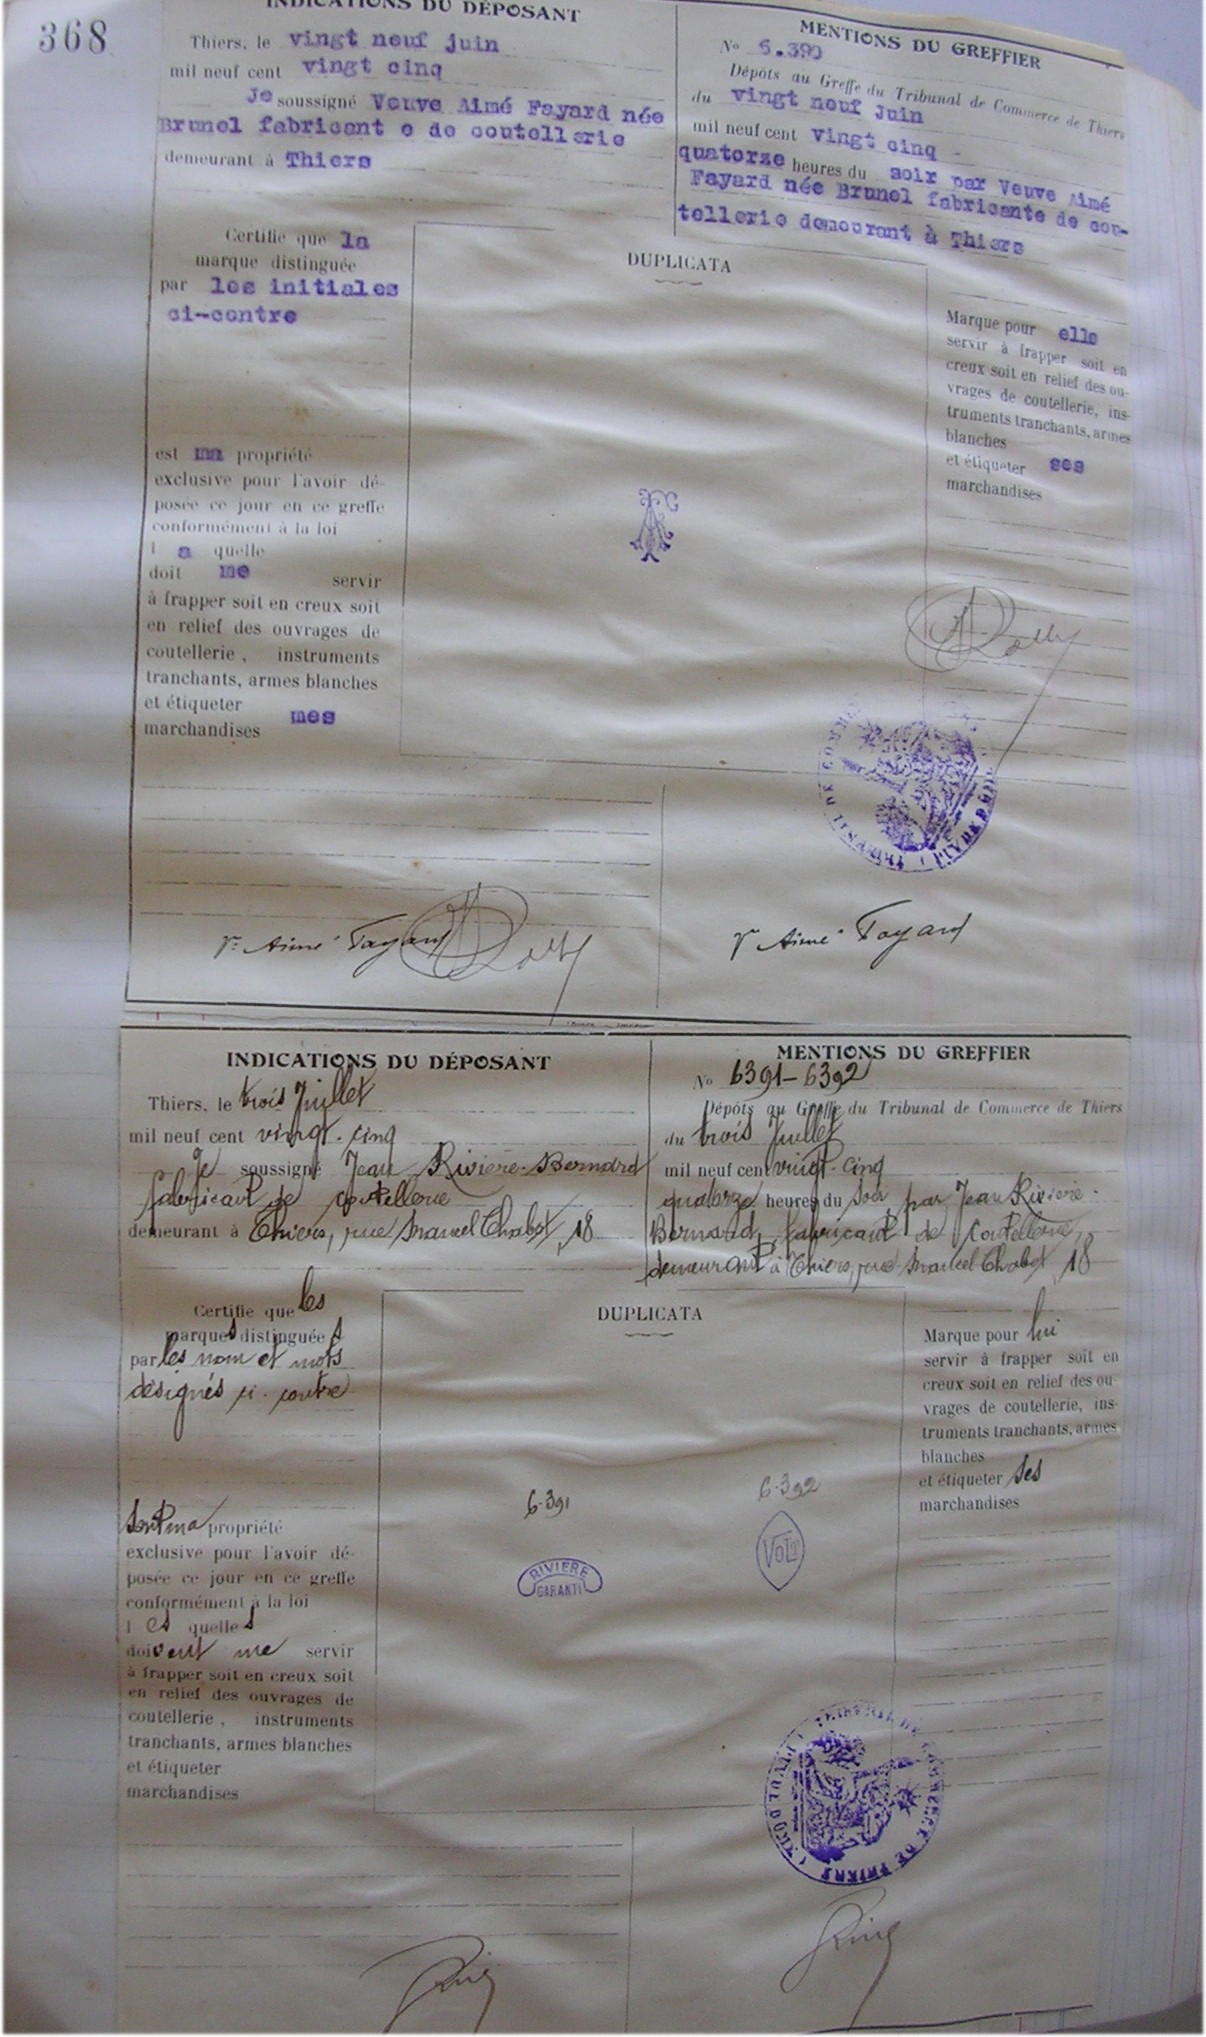 368
INDICATIONS DU DÉPOSANT
Thiers, le vingt neuf juin
mil neuf cent vingt cinq
Je soussigné Veuve Aimé Fayard née
Brunel fabricant e de coutellerie
demeurant à Thiers
MENTIONS DU GREFFIER
No 6.390
Dépôts au Greffe du Tribunal de Commerce de Thiers
du vingt neuf juin
mil neuf cent vingt cinq
quatorze heures du soir par Veuve Aimé
Fayard née Brunel fabricante de cou-
tellerie demeurant à Thiers
Certifie que la
marque distinguée
par les initiales
ci-contre
est ma propriété
exclusive pour l'avoir dé-
posée ce jour en ce greffe
conformément à la loi
l a quelle
doit me servir
à frapper soit en creux soit
en relief des ouvrages de
coutellerie, instruments
tranchants, armes blanches
et étiqueter
marchandises mes
DUPLICATA
Marque pour elle
servir à frapper soit en
creux soit en relief des ou-
vrages de coutellerie, ins-
truments tranchants, armes
blanches
et étiqueter ses
marchandises
Ve Aimé Fayard
Ve Aimé Fayard
INDICATIONS DU DÉPOSANT
Thiers, le trois Juillet
mil neuf cent vingt-cinq
Je soussigné Jean Rivière-Bernard
fabricant de coutellerie
demeurant à Thiers, rue Manuel Chabot, 18
MENTIONS DU GREFFIER
No 6391-6392
Dépôts au Greffe du Tribunal de Commerce de Thiers
du trois Juillet
mil neuf cent vingt-cinq
quatorze heures du soir par Jean Rivière-
Bernard, fabricant de coutellerie,
demeurant à Thiers, rue Manuel Chabot, 18
Certifie que les
marques distinguées
par les nom et mots
désignés ci-contre
sont ma propriété
exclusive pour l'avoir dé-
posée ce jour en ce greffe
conformément à la loi
l es quelles
doivent me servir
à frapper soit en creux soit
en relief des ouvrages de
coutellerie, instruments
tranchants, armes blanches
et étiqueter
marchandises
DUPLICATA
6.391
RIVIERE
GARANTI
6.392
VOLT
Marque pour lui
servir à frapper soit en
creux soit en relief des ou-
vrages de coutellerie, ins-
truments tranchants, armes
blanches
et étiqueter ses
marchandises
TRIBUNAL DE COMMERCE DE THIERS